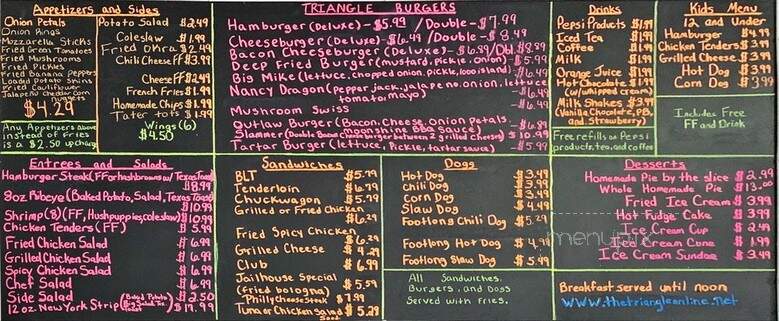 Appetizers and Sides
Onion Petals
Onion Rings
Mozzarella Sticks
Fried Green Tomatoes
Fried Mushrooms
Fried Pickles
Fried Banana Peppers
Loaded Potato Skins
Fried Cauliflower
Jalapeno Cheddar Corn
Nuggets
$4.29
Potato Salad $2.49
Coleslaw $1.99
Fried Okra $2.49
Chili Cheese FF $3.99
Cheese FF $2.49
French Fries $1.99
Homemade Chips $1.99
Tater tots $1.99
Wings (6)
$4.50
Any Appetizers above
instead of fries
is a $2.50 upcharge
TRIANGLE BURGERS
Hamburger (Deluxe) - $5.99 / Double - $7.99
Cheeseburger (Deluxe) - $6.49 / Double - $8.49
Bacon Cheeseburger (Deluxe) - $6.99/Dbl. $8.99
Deep Fried Burger (mustard, pickle, onion) - $5.99
Big Mike (lettuce, chopped onion, pickle, 1000 island) - $6.49
Nancy Dragon (pepper jack, jalapeno, onion, lettuce
tomato, mayo) - $6.49
Mushroom Swiss - $6.49
Outlaw Burger (Bacon, Cheese, onion petals
moonshine BBQ sauce) - $6.89
Slammer (Double Bacon Cheeseburger between 2 grilled Cheeses) $10.99
Tartar Burger (lettuce, Pickle, tartar sauce) - $5.99
Drinks
Pepsi Products $1.99
Iced Tea $1.99
Coffee $1.99
Milk $1.99
Orange Juice $1.99
Hot Chocolate $1.99
(w/whipped cream)
Milk Shakes $3.99
(Vanilla, Chocolate, PB,
and Strawberry)
Free refills on Pepsi
products, tea, and coffee
Kids Menu
12 and Under
Hamburger $4.99
Chicken Tenders $3.99
Grilled Cheese $3.99
Hot Dog $3.99
Corn Dog $3.99
Includes Free
FF and Drink
Entrees and Salads
Hamburger Steak (FF or hashbrowns w/ Texas Toast)
$8.99
8oz Ribeye (Baked Potato, Salad, Texas Toast)
$10.99
Shrimp (8) (FF, Hushpuppies, coleslaw) $10.99
Chicken Tenders (FF) $5.99
Fried Chicken Salad $6.99
Grilled Chicken Salad $6.99
Spicy Chicken Salad $6.99
Chef Salad $6.99
Side Salad $2.50
12 oz. New York Strip $17.99
Sandwiches
BLT $5.79
Tenderloin $6.79
Chuckwagon $5.79
Grilled or Fried Chicken
$6.29
Fried Spicy Chicken
$6.29
Grilled Cheese $4.29
Club $6.99
Jailhouse Special
(fried bologna) $5.59
Philly Cheese Steak $7.99
Tuna or Chicken Salad $5.29
Dogs
Hot Dog $3.49
Chili Dog $3.99
Corn Dog $3.49
Slaw Dog $4.49
Footlong Chili Dog $5.29
Footlong Hot Dog $4.99
Footlong Slaw Dog $5.49
All Sandwiches,
Burgers, and Dogs
Served with Fries.
Desserts
Homemade Pie by the slice $2.99
Whole Homemade Pie $13.00
Fried Ice Cream $3.99
Hot Fudge Cake $3.99
Ice Cream Cup $2.49
Ice Cream Cone $1.99
Ice Cream Sundae $3.49
menupix
Breakfast served until noon
www.thetriangleonline.net